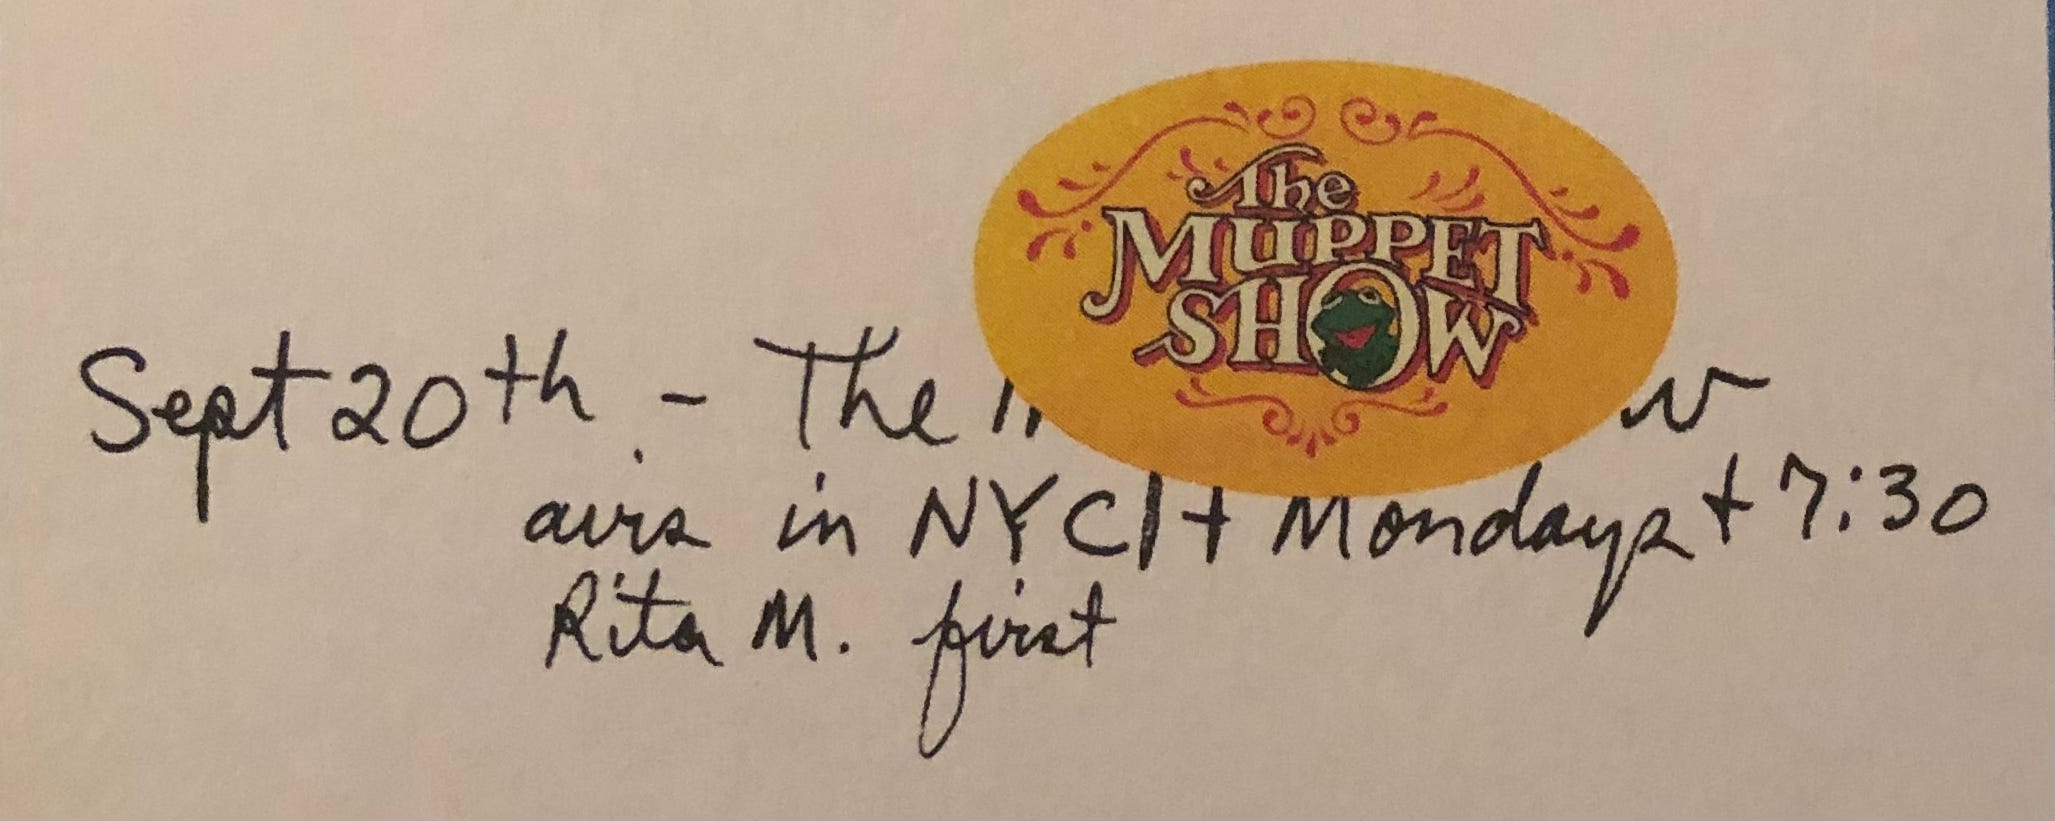 The
MUPPET
SHOW
Sept 20th - The
airs in NYC 1t Mondays t 7:30
Rita M. first